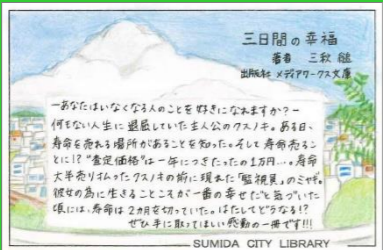 三日間の幸福
著者 三秋 縋
出版社 メディアワークス文庫
―あなたはいなくなる人のことを好きになれますか？―
何もない人生に退屈していた主人公のクスノキ。ある日、
寿命を売れる場所があることを知った。そして寿命売るこ
とに!?“査定価格”は一年につきたったの1万円…。寿命
大半売り払ったクスノキの前に現れた「監視員」のミヤギ。
彼女の為に生きることこそが一番の幸せだと気づいた
頃には、寿命は2カ月を切っていた。はたしてどうなる!?
ぜひ手に取ってほしい感動の一冊です!!!
SUMIDA CITY LIBRARY